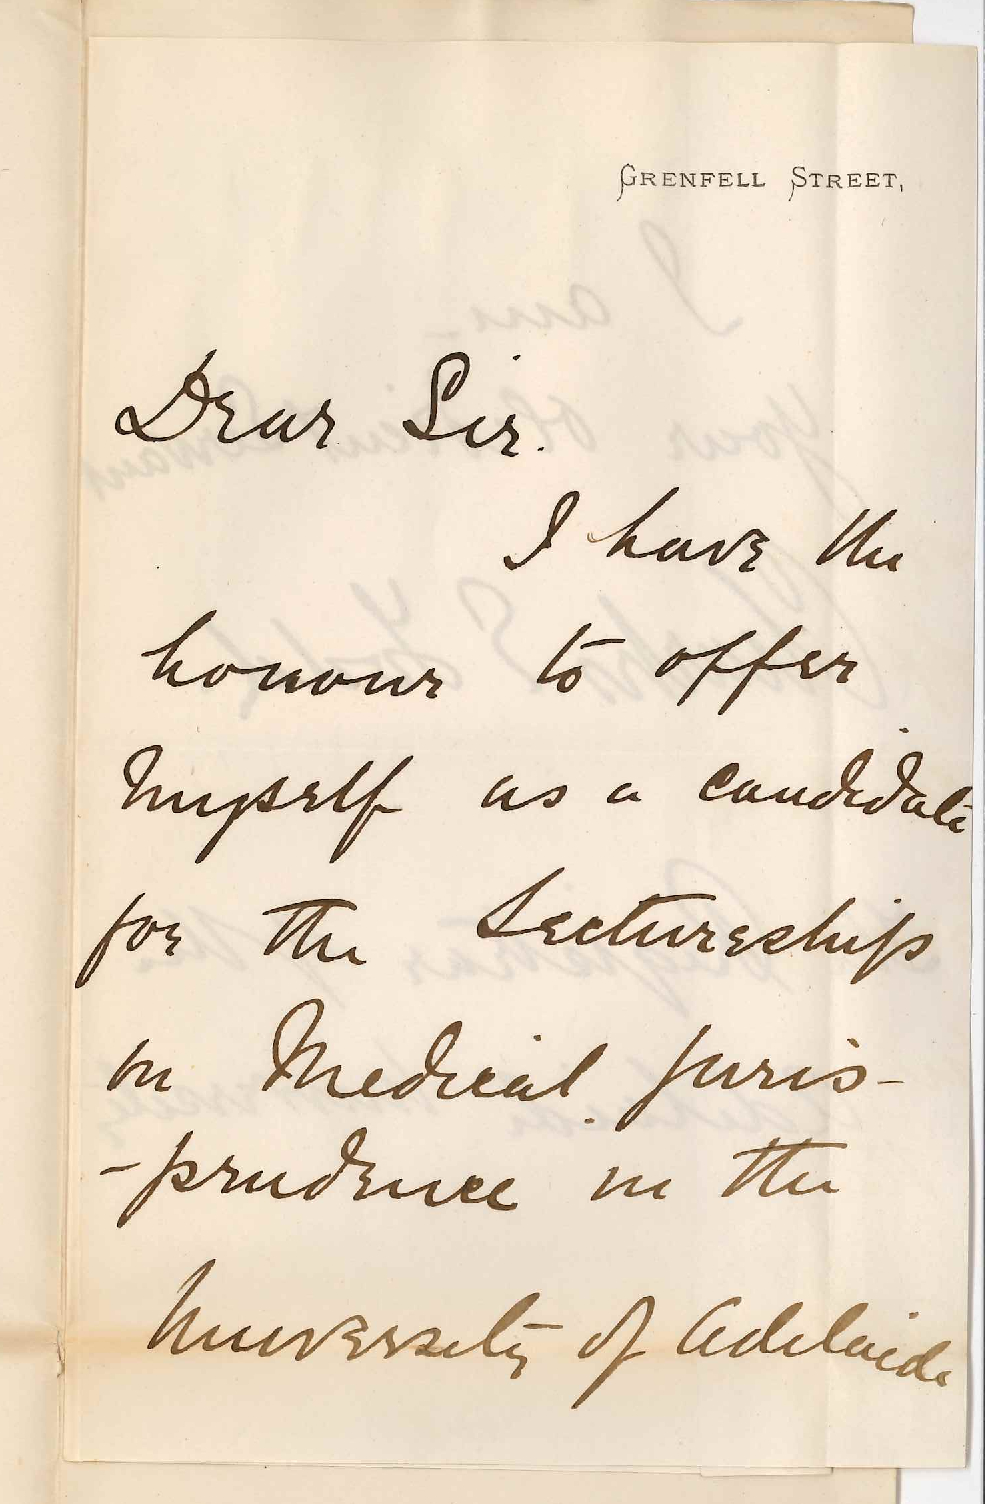 GRENFELL STREET,
Dear Sir.
I have the
honour to offer
myself as a candidate
for the Lectureship
on Medical Juris-
-prudence in the
University of Adelaide